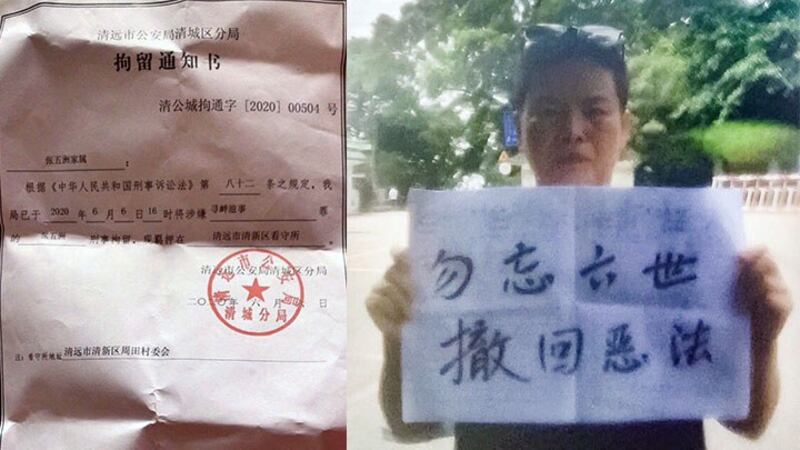 清远市公安局清城区分局
拘留通知书
清公城拘通字 [2020] 00504 号
张五洲家属：
根据《中华人民共和国刑事诉讼法》第 八十二 条之规定，我
局已于 2020 年 6 月 6 日 16 时将涉嫌 寻衅滋事 罪
的 张五洲 刑事拘留，现羁押在 清远市清新区看守所。
清远市公安局清城区分局
二〇二〇年 六 月 日
清远市公安局
清城分局
注：看守所地址 清远市清新区周田村委会
勿忘六世
撤回恶法